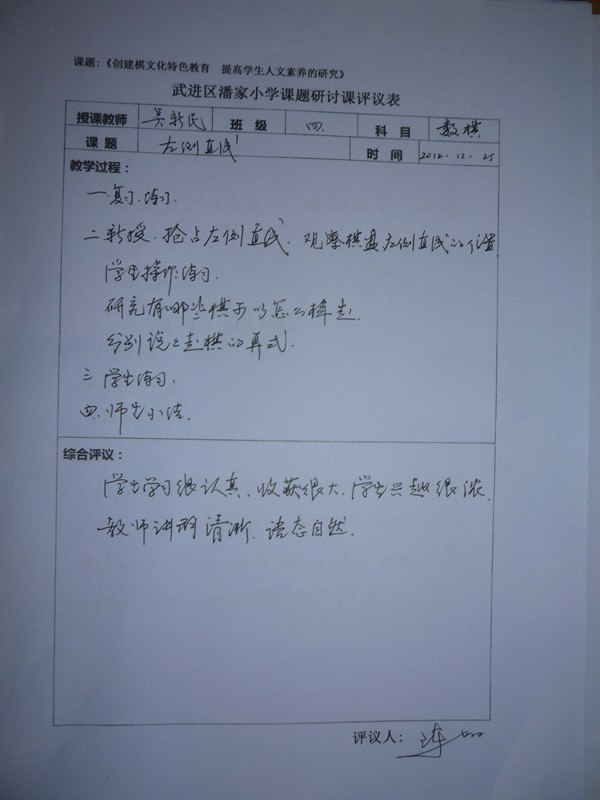 课题：《创建棋文化特色教育　提高学生人文素养的研究》
武进区潘家小学课题研讨课评议表
授课教师 吴新民 班级 四. 科目 数棋
课题 左侧直线 时间 2012.12.25
教学过程：
一.复习.练习.
二.新授.抢占左侧直线.观察棋盘左侧直线的位置
学生操作练习.
研究有哪些棋可以怎么样走.
分别说说走棋的算式.
三.学生练习.
四.师生小结.
综合评议：
学生学习很认真、收获很大.学生兴趣很浓.
教师讲 清晰.语态自然.
评议人：